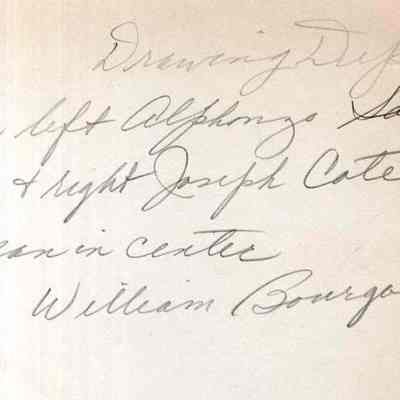 Drawing Dep
left Alphonzo Sa
+ right Joseph Cote
an in center
William Bourgo